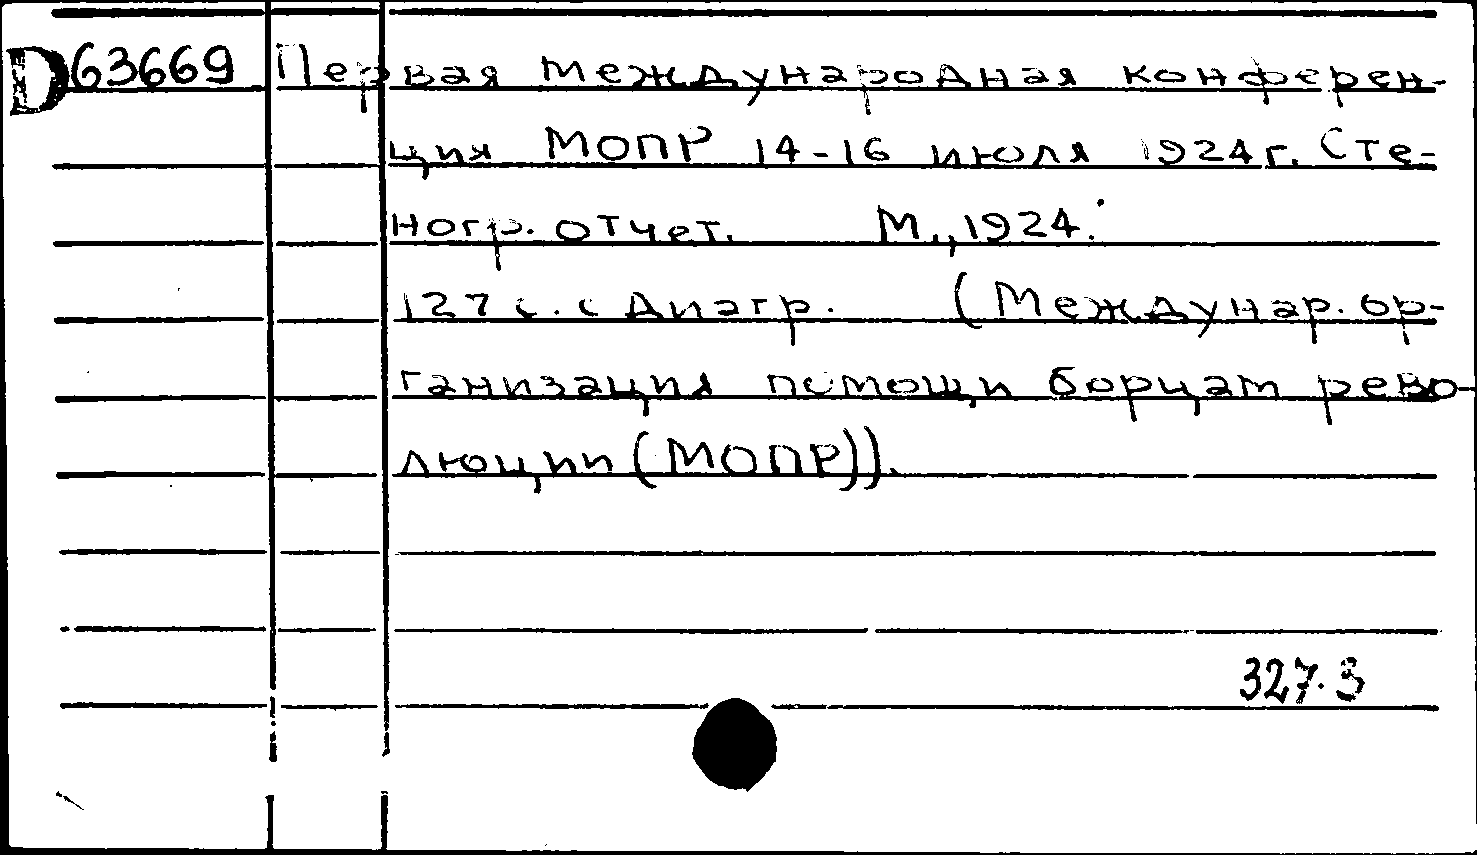 D63669 Первая международная конферен-
ция МОПР 14-16 июля 1924г. Сте-
ногр. отчет. М., 1924.
127 с. с диагр. (Междунар. ор-
ганизация помощи борцам рево-
люции (МОПР)).
327.3